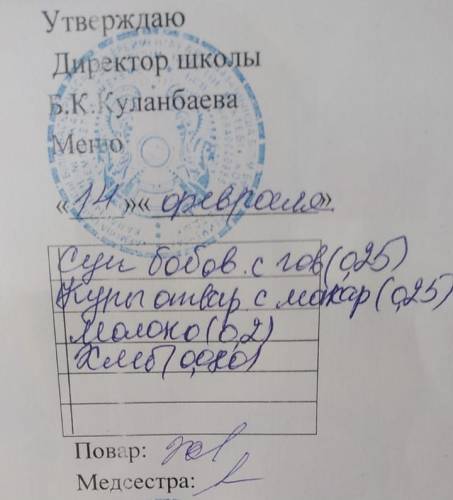 Утверждаю
Директор школы
Б.К.Куланбаева
Меню
«14»«февраля»
Суп бобов. с гов(0,25)
Куры отвар. с макар(0,25)
Молоко(0,2)
Хлеб(0,080)
Повар:
Медсестра: